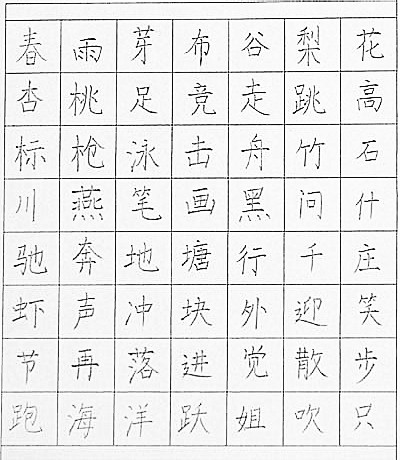 春雨芽布谷梨花
杏桃足竞走跳高
标枪泳击舟竹石
川燕笔画黑问什
驰奔地塘行千庄
虾声冲块外迎笑
节再落进觉散步
跑海洋跃姐吹只